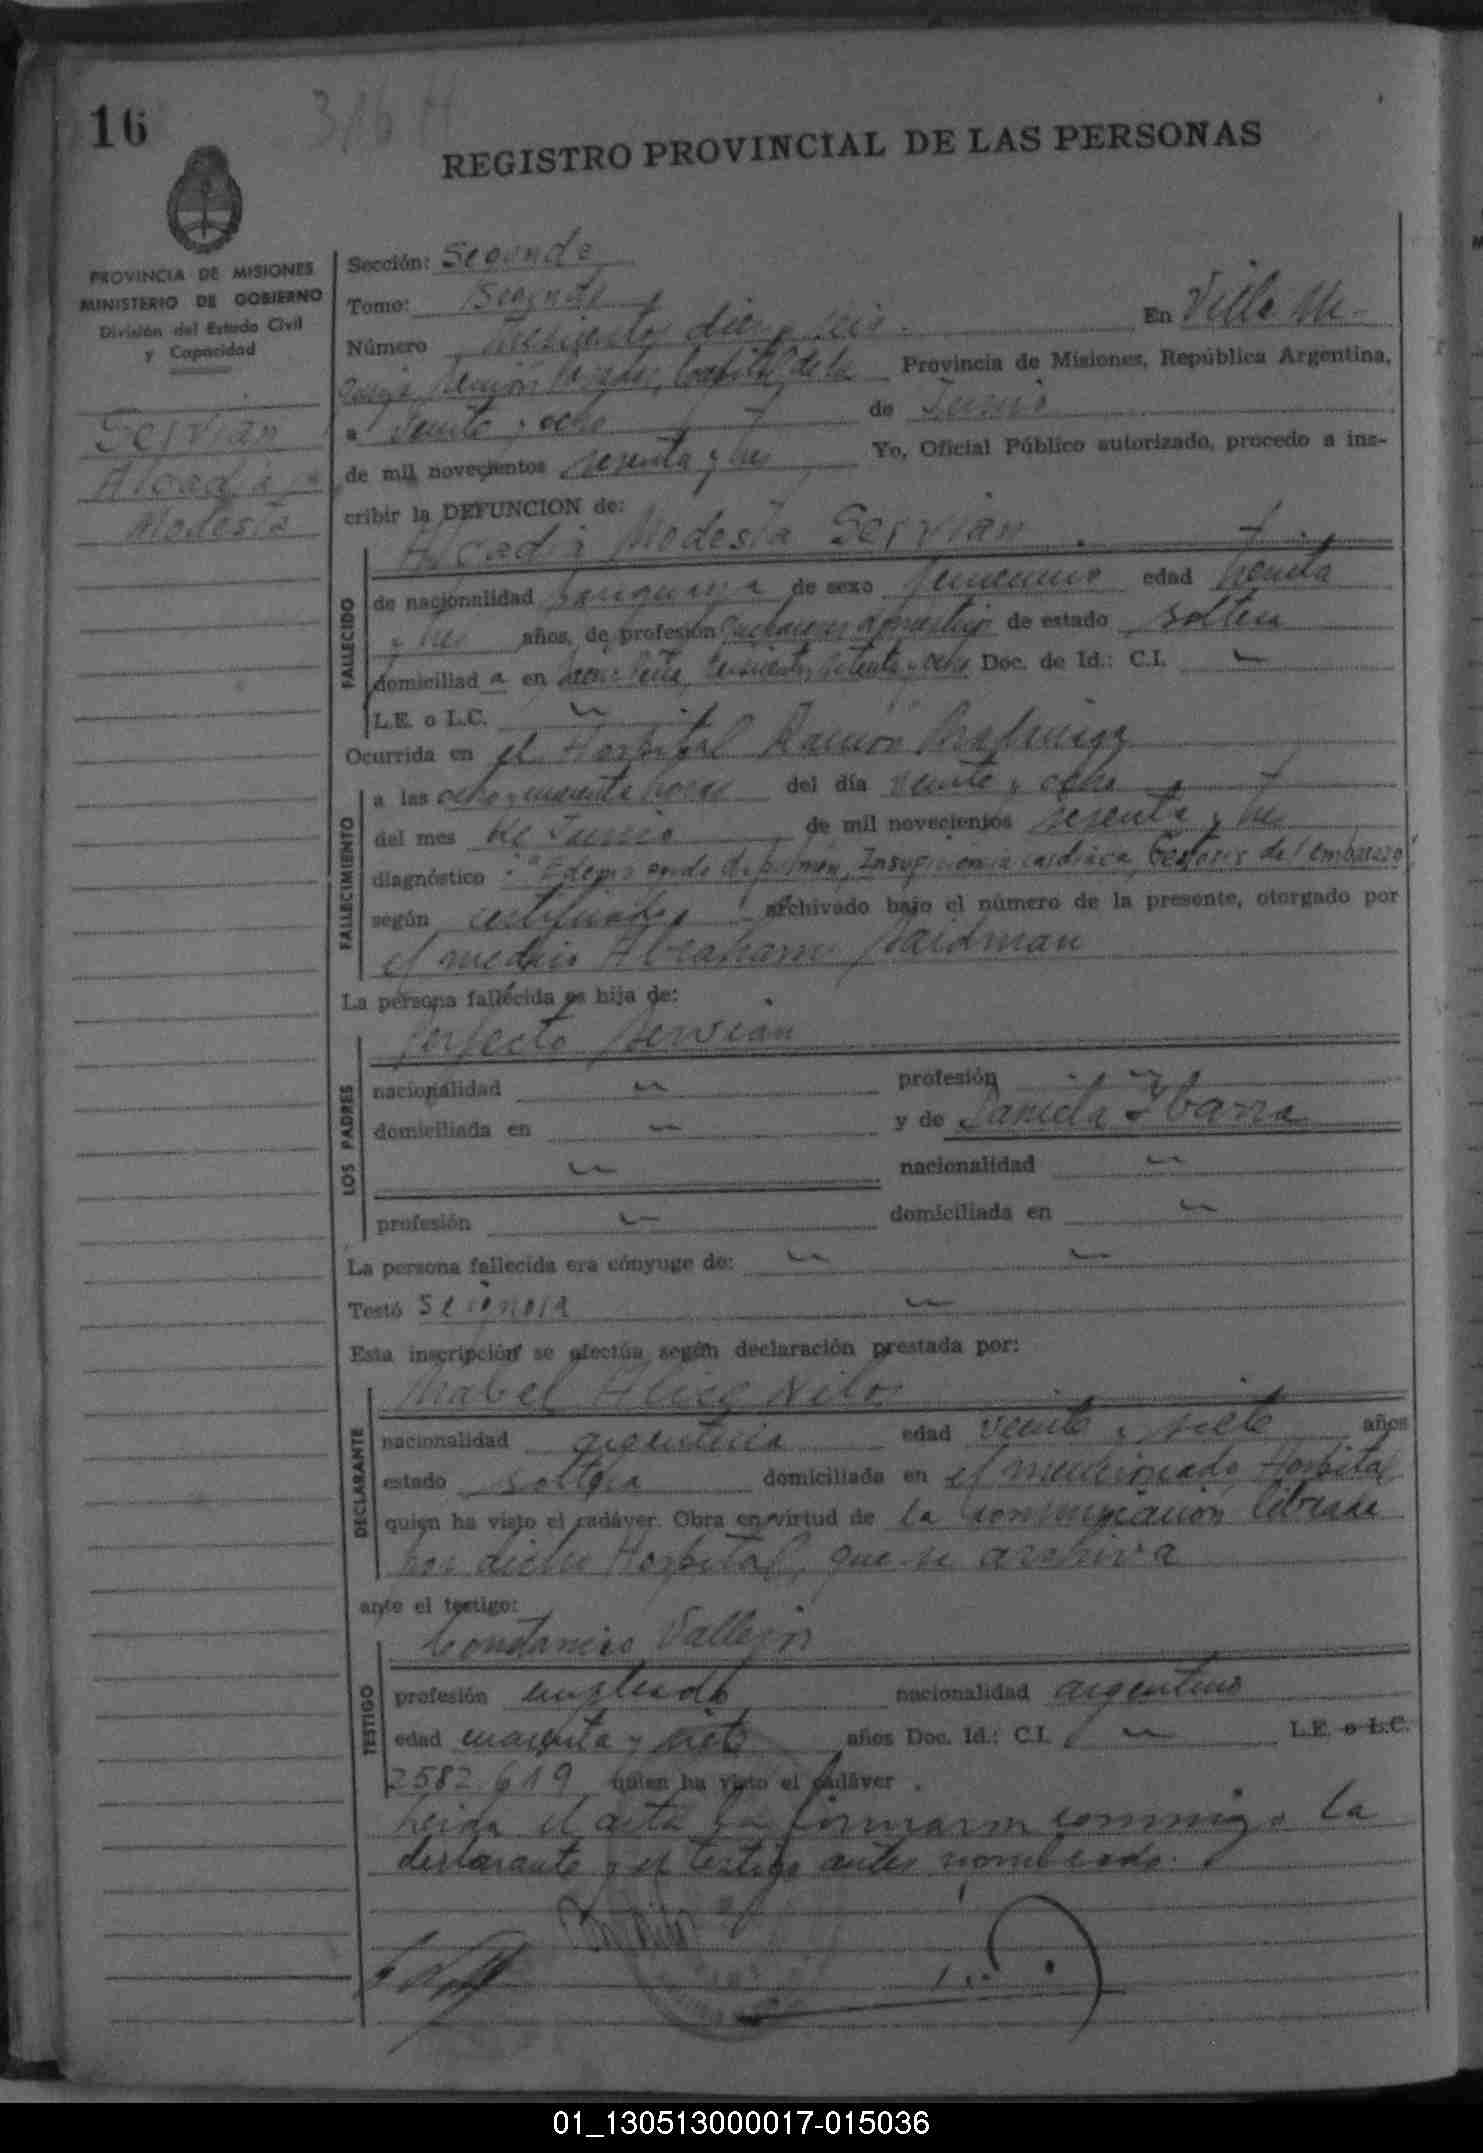 16
316 H
REGISTRO PROVINCIAL DE LAS PERSONAS
PROVINCIA DE MISIONES
MINISTERIO DE GOBIERNO
División del Estado Civil
y Capacidad
Servian
Alcadia
Modesta
Sección: Segunda
Tomo: Segundo
Número trescientos diez y seis. En Villa
Capital de la Provincia de Misiones, República Argentina,
a veinte y ocho de Junio
de mil novecientos sesenta y tres Yo, Oficial Público autorizado, procedo a ins-
cribir la DEFUNCION de:
Alcadia Modesta Servian
FALLECIDO
de nacionalidad de sexo femenino edad treinta
y tres años, de profesión quehaceres domésticos de estado soltera
domiciliad a en trescientos setenta y ocho Doc. de Id.: C.I.
L.E. o L.C.
Ocurrida en el Hospital Ramón Madariaga
FALLECIMIENTO
a las ocho y cuarenta horas del día veinte y ocho
del mes de Junio de mil novecientos sesenta y tres
diagnóstico : "Edema agudo de pulmón, Insuficiencia cardiaca, del embarazo"
según certificado archivado bajo el número de la presente, otorgado por
el medico Abraham Saidman
La persona fallecida es hija de:
Perfecto Servian
LOS PADRES
nacionalidad profesión
domiciliada en y de Daniela Ybarra
nacionalidad
profesión domiciliada en
La persona fallecida era cónyuge de:
Testó Se ignora
Esta inscripción se efectúa según declaración prestada por:
Mabel Alice
DECLARANTE
nacionalidad argentina edad veinte y siete años
estado soltera domiciliada en el mencionado Hospital
quien ha visto el cadáver. Obra en virtud de la comunicación librada
por dicho Hospital, que se archiva
ante el testigo:
Constancio Vallejos
TESTIGO
profesión empleado nacionalidad argentino
edad cuarenta y siete años Doc. Id.: C.I. L.E. o L.C.
2582.619 quien ha visto el cadáver .
Leida el acta la firmaron conmigo la
declarante y el testigo antes nombrado.
01_130513000017-015036